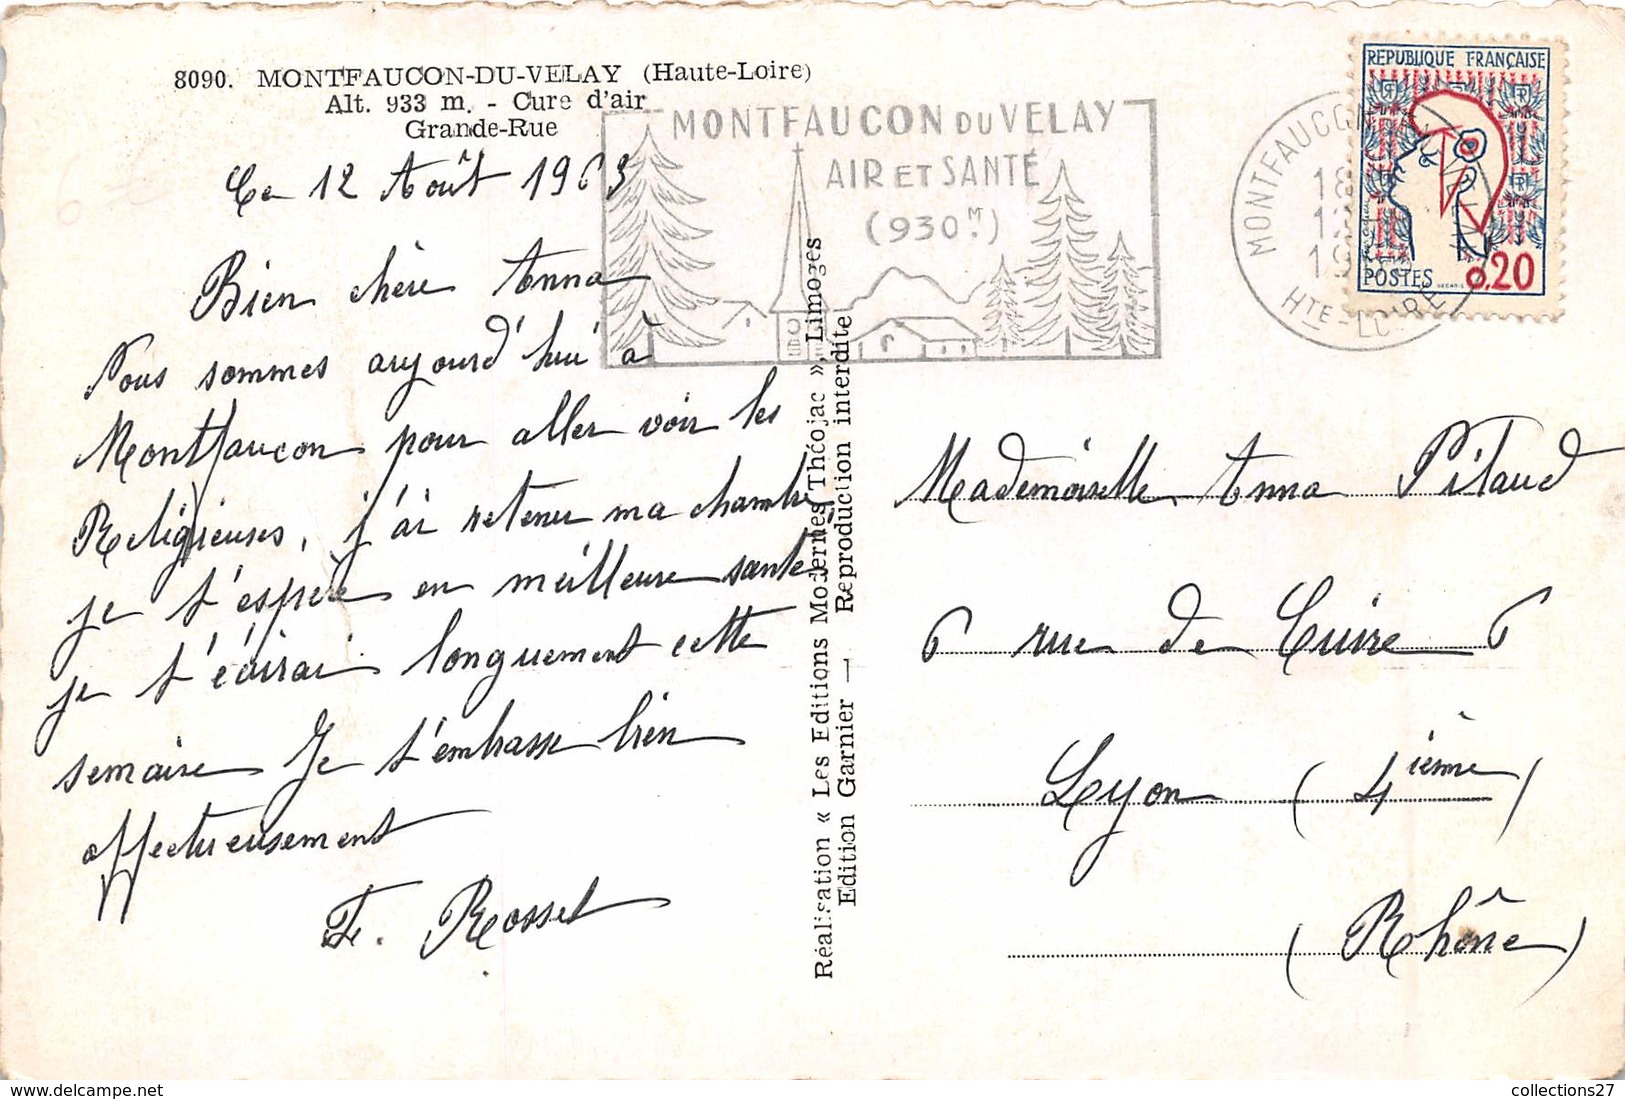 8090. MONTFAUCON-DU-VELAY (Haute-Loire)
Alt. 933 m. - Cure d'air
Grande-Rue
Ce 12 Août 1963
Bien chère Anna
Nous sommes aujourd'hui à
Montfaucon pour aller voir les
Religieuses, j'ai retenu ma chambre
je t'espère en meilleure santé
je t'écrirai longuement cette
semaine Je t'embrasse bien
affectueusement
F. Rosset
Réalisation « Les Editions Modernes Théojac », Limoges
Edition Garnier — Reproduction interdite
MONTFAUCON DU VELAY
AIR ET SANTÉ
(930 M.)
MONTFAUCON VELAY
18
12
19
HTE-LOIRE
REPUBLIQUE FRANÇAISE
RF
POSTES
0,20
Mademoiselle Anna Pitaud
6 rue de Cuire 6
Lyon (4ième)
(Rhône)
collections27